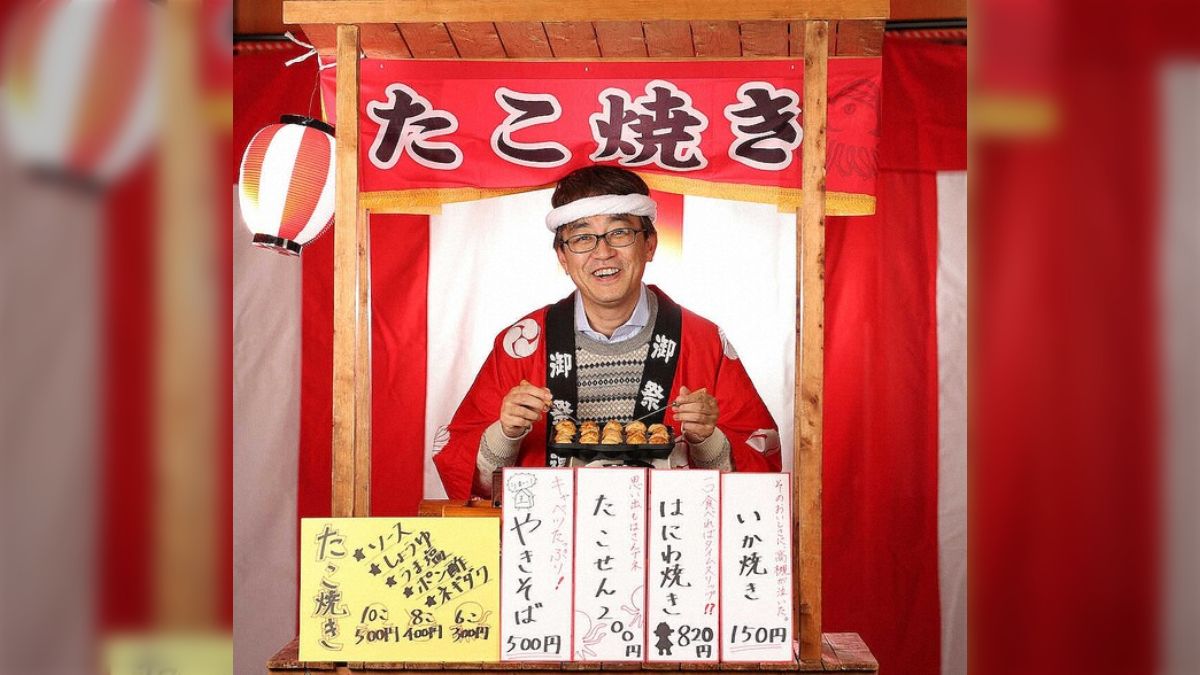 たこ焼き
御祭
御祭
たこ焼き
★ソース
★しょうゆ
★うま塩
★ポン酢
★ネギダク
10こ
500円
8こ
400円
6こ
300円
キャベツたっぷり!
やきそば
500円
思い出もはさんデネ
たこせん
200円
一つ食べればタイムスリップ!?
はにわ焼き
820円
そのおいしさに、高槻が泣いた。
いか焼き
150円